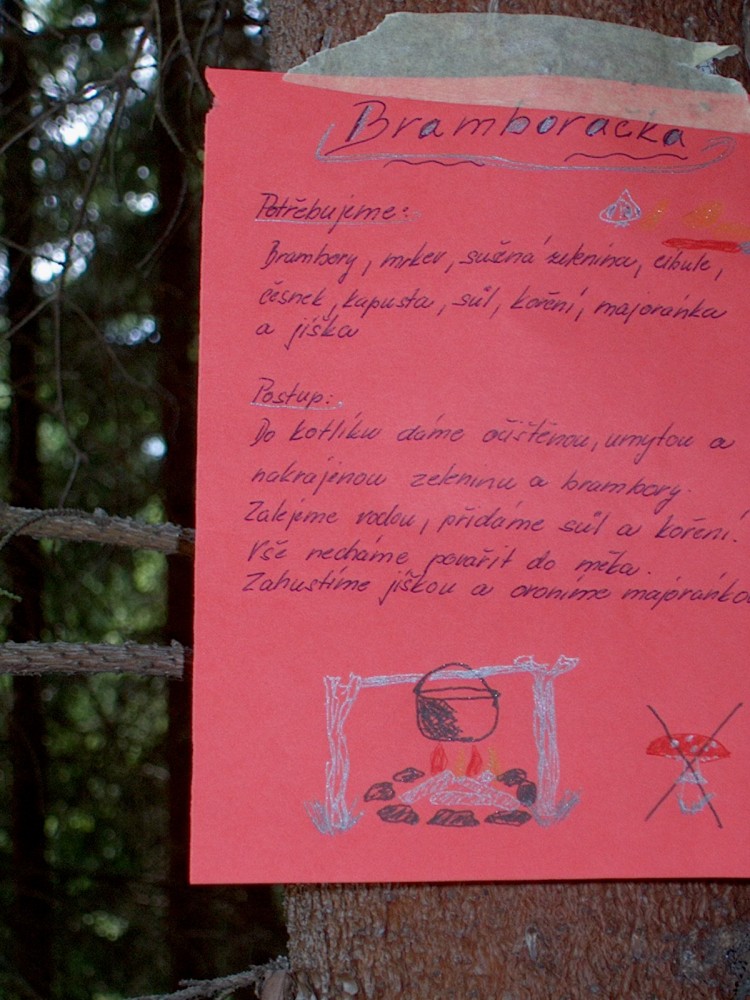 Bramboračka
Potřebujeme:
Brambory, mrkev, sušená zelenina, cibule,
česnek, kapusta, sůl, koření, majoránka
a jíška
Postup:
Do kotlíku dáme očištěnou, umytou a
nakrájenou zeleninu a brambory.
Zalejeme vodou, přidáme sůl a koření.
Vše necháme povařit do měka.
Zahustíme jíškou a ovoníme majoránko